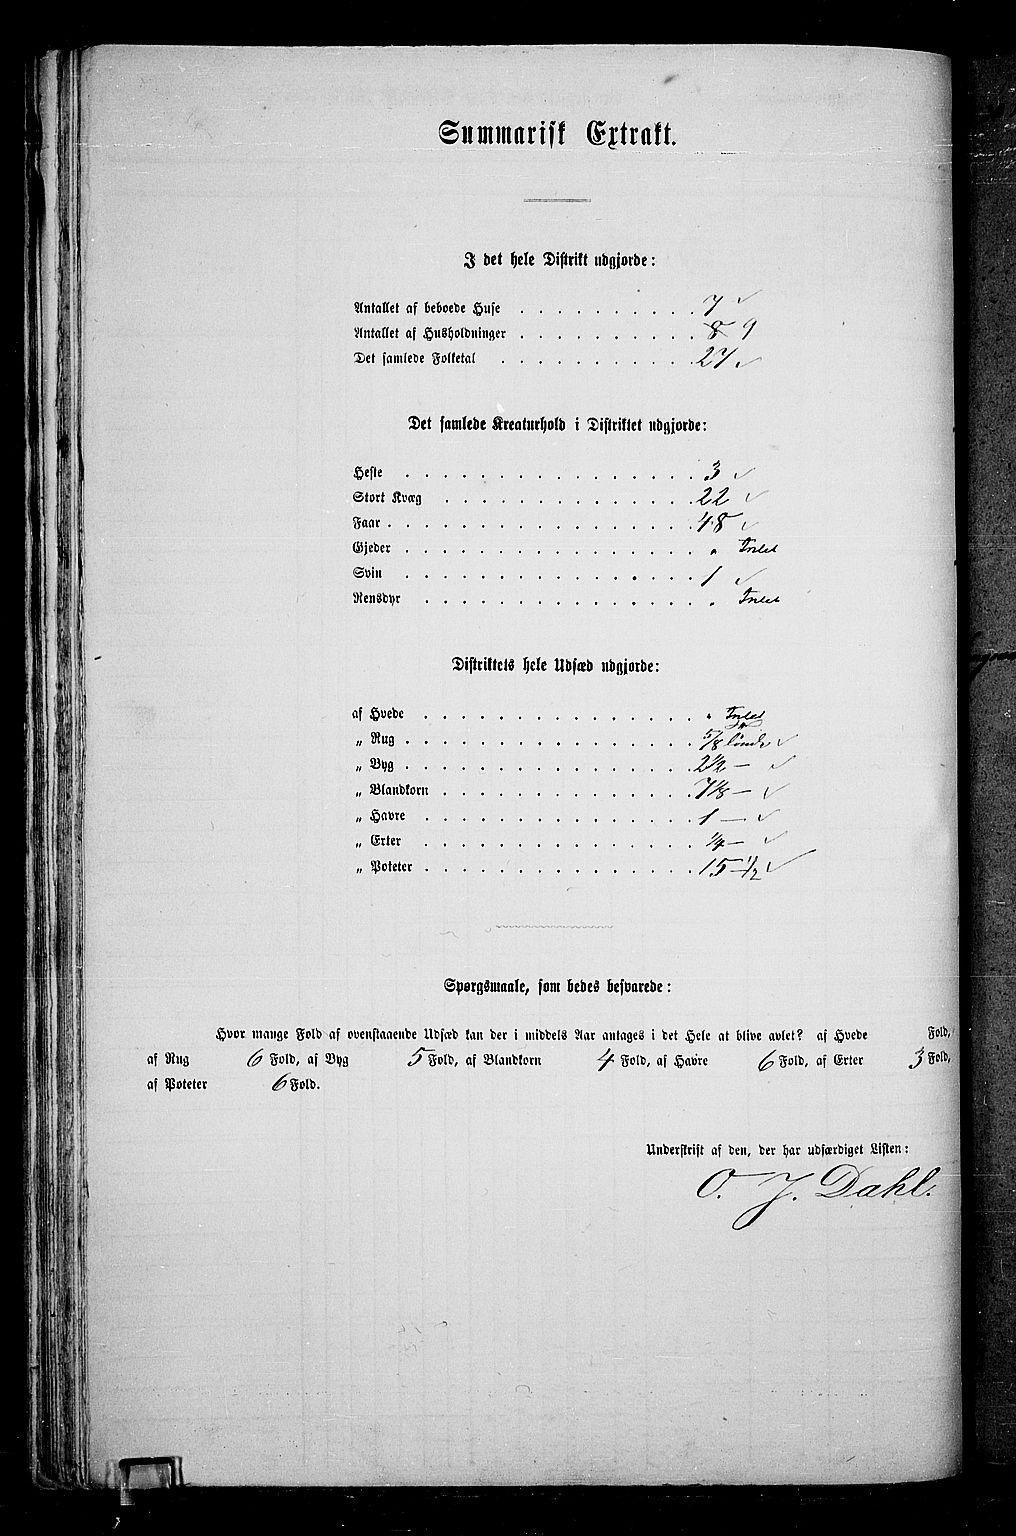 Summarisk Extrakt.
I det hele Distrikt udgjorde:
Antallet af beboede Huse . . . . . . . . . . 7 ✓
Antallet af Husholdninger . . . . . . . . . . 8 9
Det samlede Folketal . . . . . . . . . . . 27 ✓
Det samlede Kreaturhold i Distriktet udgjorde:
Heste . . . . . . . . . . . . . . . . 3 ✓
Stort Kvæg . . . . . . . . . . . . . . 22 ✓
Faar . . . . . . . . . . . . . . . . . 48 ✓
Gjeder . . . . . . . . . . . . . . . . " Intet
Svin . . . . . . . . . . . . . . . . 1 ✓
Rensdyr . . . . . . . . . . . . . . . . Intet
Distriktets hele Udsæd udgjorde:
af Hvede . . . . . . . . . . . . . . . " Intet
„ Rug . . . . . . . . . . . . . . . . 5/8 tønde ✓
„ Byg . . . . . . . . . . . . . . . . 2 1/2 — ✓
„ Blandkorn . . . . . . . . . . . . . . 7 1/8 — ✓
„ Havre . . . . . . . . . . . . . . . 1 — ✓
„ Erter . . . . . . . . . . . . . . . 1/4 — ✓
„ Poteter . . . . . . . . . . . . . . . 15 1/2 ✓
Spørgsmaale, som bedes besvarede:
Hvor mange Fold af ovenstaaende Udsæd kan der i middels Aar antages i det Hele at blive avlet? af Hvede Fold,
af Rug 6 Fold, af Byg 5 Fold, af Blandkorn 4 Fold, af Havre 6 Fold, af Erter 3 Fold,
af Poteter 6 Fold.
Underskrift af den, der har udfærdiget Listen:
O. J. Dahl.